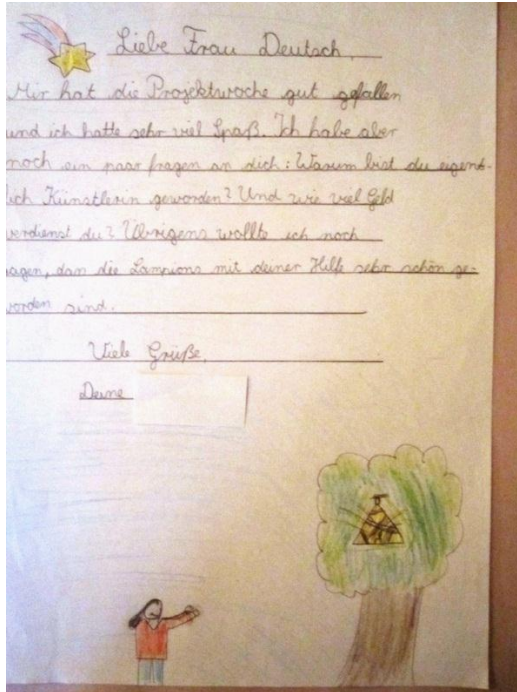 Liebe Frau Deutsch,
Mir hat die Projektwoche gut gefallen
und ich hatte sehr viel Spaß. Ich habe aber
noch ein paar fragen an dich: Warum bist du eigent-
lich Künstlerin geworden? Und wie viel Geld
verdienst du? Übrigens wollte ich noch
sagen, das die Lampions mit deiner Hilfe sehr schön ge-
worden sind.
Viele Grüße,
Deine